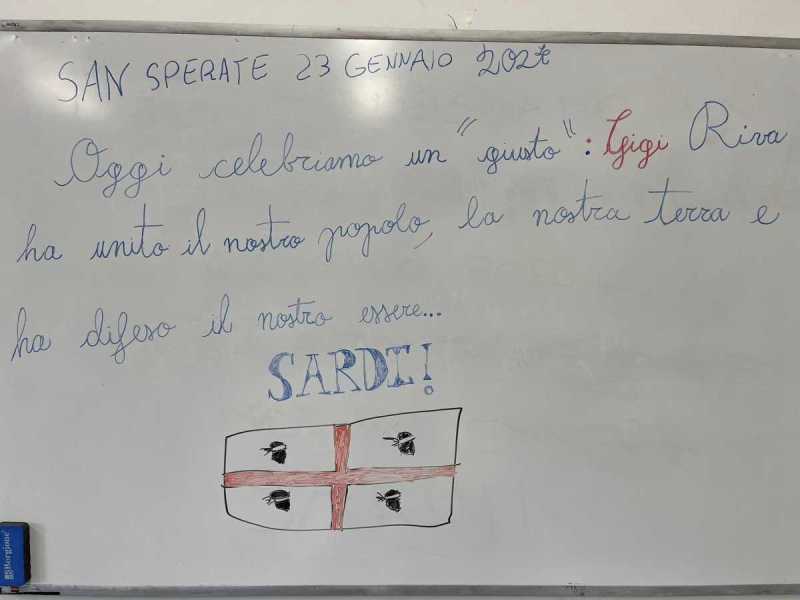 SAN SPERATE 23 GENNAIO 2024
Oggi celebriamo un "giusto": Gigi Riva
ha unito il nostro popolo, la nostra terra e
ha difeso il nostro essere...
SARDI!
Borgione